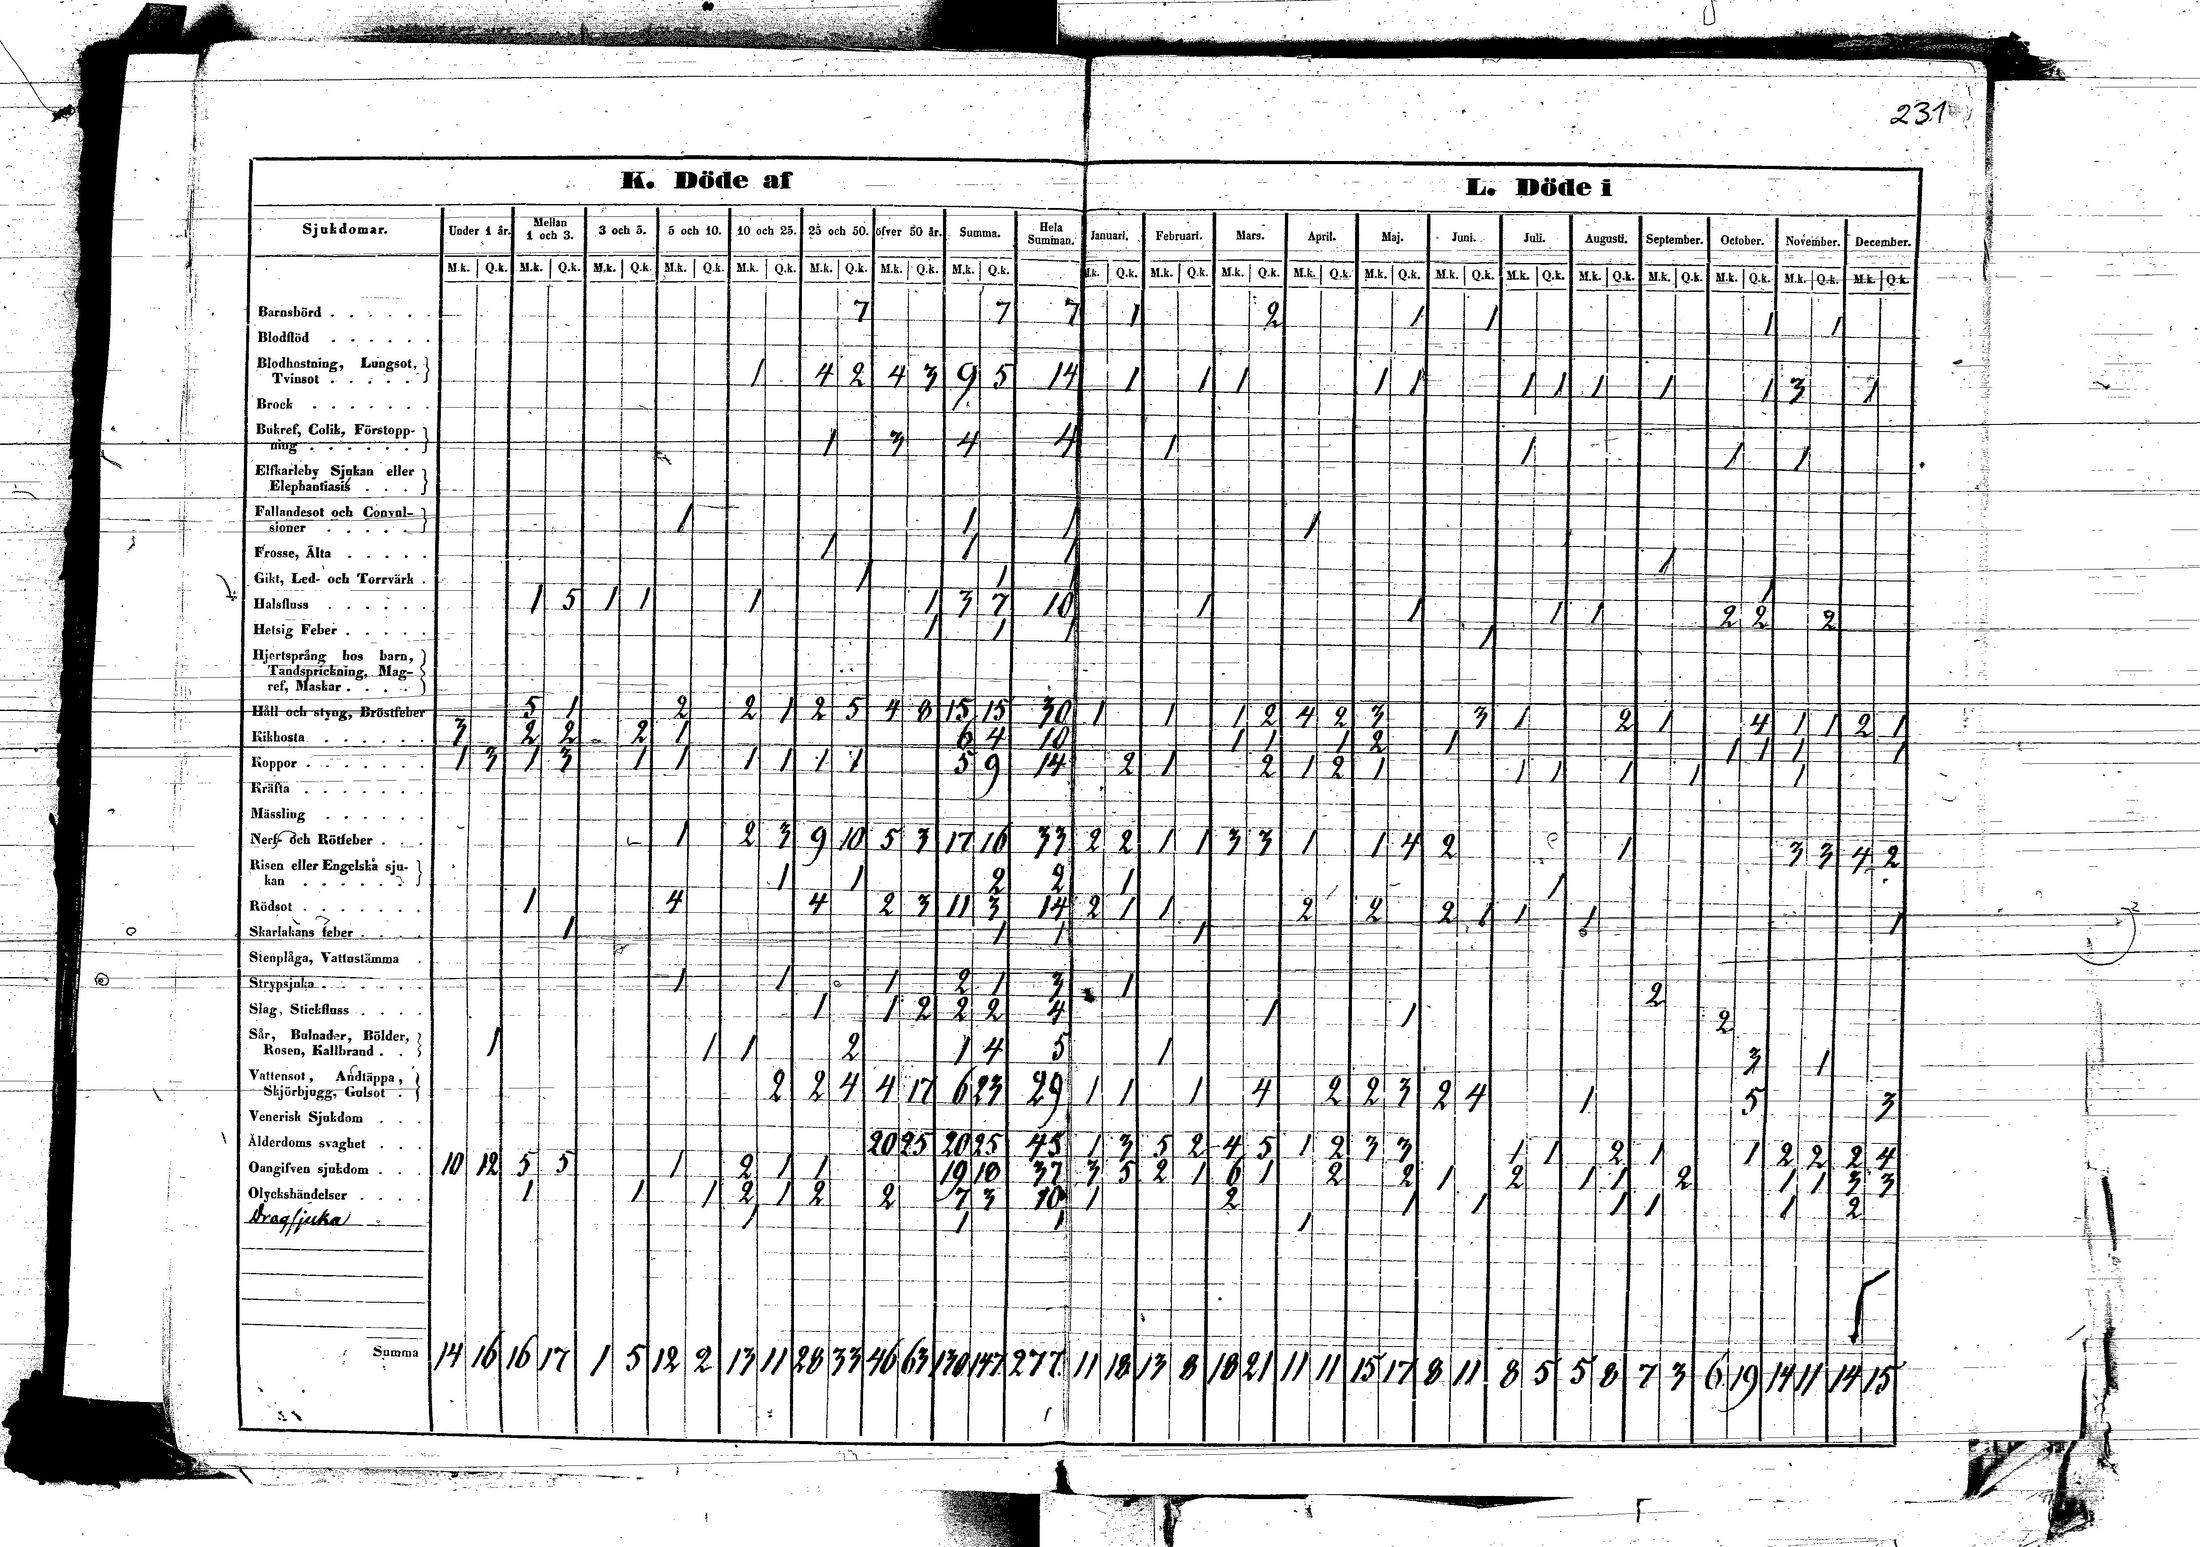 231
K. Döde af L. Döde i
Sjukdomar. Under 1 år. Mellan 1 och 3. 3 och 5. 5 och 10. 10 och 25. 25 och 50. öfver 50 år. Summa. Hela Summan. Januari. Februari. Mars. April. Maj. Juni. Juli. Augusti. September. October. November. December.
M.k. Q.k. M.k. Q.k. M.k. Q.k. M.k. Q.k. M.k. Q.k. M.k. Q.k. M.k. Q.k. M.k. Q.k. M.k. Q.k. M.k. Q.k. M.k. Q.k. M.k. Q.k. M.k. Q.k. M.k. Q.k. M.k. Q.k. M.k. Q.k. M.k. Q.k. M.k. Q.k. M.k. Q.k. M.k. Q.k.
Barnsbörd 7 7 7 1 2 1 1 1 1
Blodflöd
Blodhostning, Lungsot,
Tvinsot 1 4 2 4 3 9 5 14 1 1 1 1 1 1 1 1 1 1 3 1
Brock
Bukref, Colik, Förstopp-
ning 1 3 4 4 1 1 1 1
Elfkarleby Sjukan eller
Elephantiasis
Fallandesot och Convul-
sioner 1 1 1 1
Frosse, Älta 1 1 1 1
Gikt, Led- och Torrvärk 1 1 1 1
Halsfluss 1 5 1 1 1 1 3 7 10 1 1 1 1 2 2 2
Hetsig Feber 1 1 1 1
Hjertsprång hos barn,
Tandsprickning, Mag-
ref, Maskar
Håll och styng, Bröstfeber 5 1 2 2 1 2 5 4 8 15 15 30 1 1 1 2 4 2 3 3 1 2 1 4 1 1 2 1
Kikhosta 3 2 2 2 1 6 4 10 1 1 1 2 1 1 1 1 1
Koppor 1 3 1 3 1 1 1 1 1 1 5 9 14 2 1 2 1 2 1 1 1 1 1 1
Kräfta
Mässling
Nerf- och Rötfeber 1 2 3 9 10 5 3 17 16 33 2 2 1 1 3 3 1 1 4 2 1 3 3 4 2
Risen eller Engelska sju-
kan 1 1 2 2 1 1
Rödsot 1 4 4 2 3 11 3 14 2 1 1 2 2 2 1 1 1 1
Skarlakans feber 1 1 1 1
Stenplåga, Vattustämma
Strypsjuka 1 1 1 2 1 3 1 2
Slag, Stickfluss 1 1 2 2 2 4 1 1 2
Sår, Bulnader, Bölder,
Rosen, Kallbrand 1 1 1 2 1 4 5 1 3 1
Vattensot, Andtäppa,
Skjörbjugg, Gulsot 2 2 4 4 17 6 23 29 1 1 1 4 2 2 3 2 4 1 5 3
Venerisk Sjukdom
Ålderdoms svaghet 20 25 20 25 45 1 3 5 2 4 5 1 2 3 3 1 1 2 1 1 2 2 2 4
Oangifven sjukdom 10 12 5 5 1 2 1 1 19 18 37 3 5 2 1 6 1 2 2 1 2 1 1 2 1 1 3 3
Olyckshändelser 1 1 1 2 1 2 2 7 3 10 1 2 1 1 1 1 1 2
Dragsjuka 1 1 1 1
Summa 14 16 16 17 1 5 12 2 13 11 28 33 46 63 130 147 277 11 18 13 8 18 21 11 11 15 17 8 11 8 5 5 8 7 3 6 19 14 11 14 15